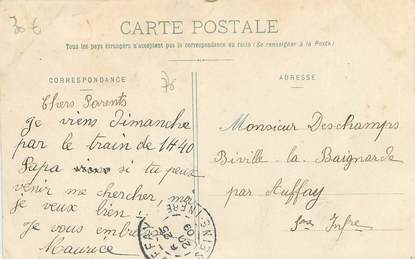 30 €
CARTE POSTALE
Tous les pays étrangers n'acceptent pas la correspondance au recto (Se renseigner à la Poste)
CORRESPONDANCE
76
Chers Parents
Je viens Dimanche
par le train de 1H40
Papa si tu peux
venir me chercher, moi
je veux bien
Je vous embrasse
Maurice
ADRESSE
Monsieur Deschamps
Biville-la-Baignarde
par Auffay
Sne Infre